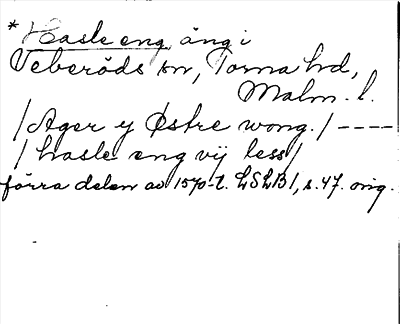 * Hasle eng, äng i
Veberöds sn, Torna hd,
Malm. l.
/ Ager y Østre wong. / ----
/ hasle eng vij less /
förra delen av 1570-t. LSLB 1, s. 47. orig.